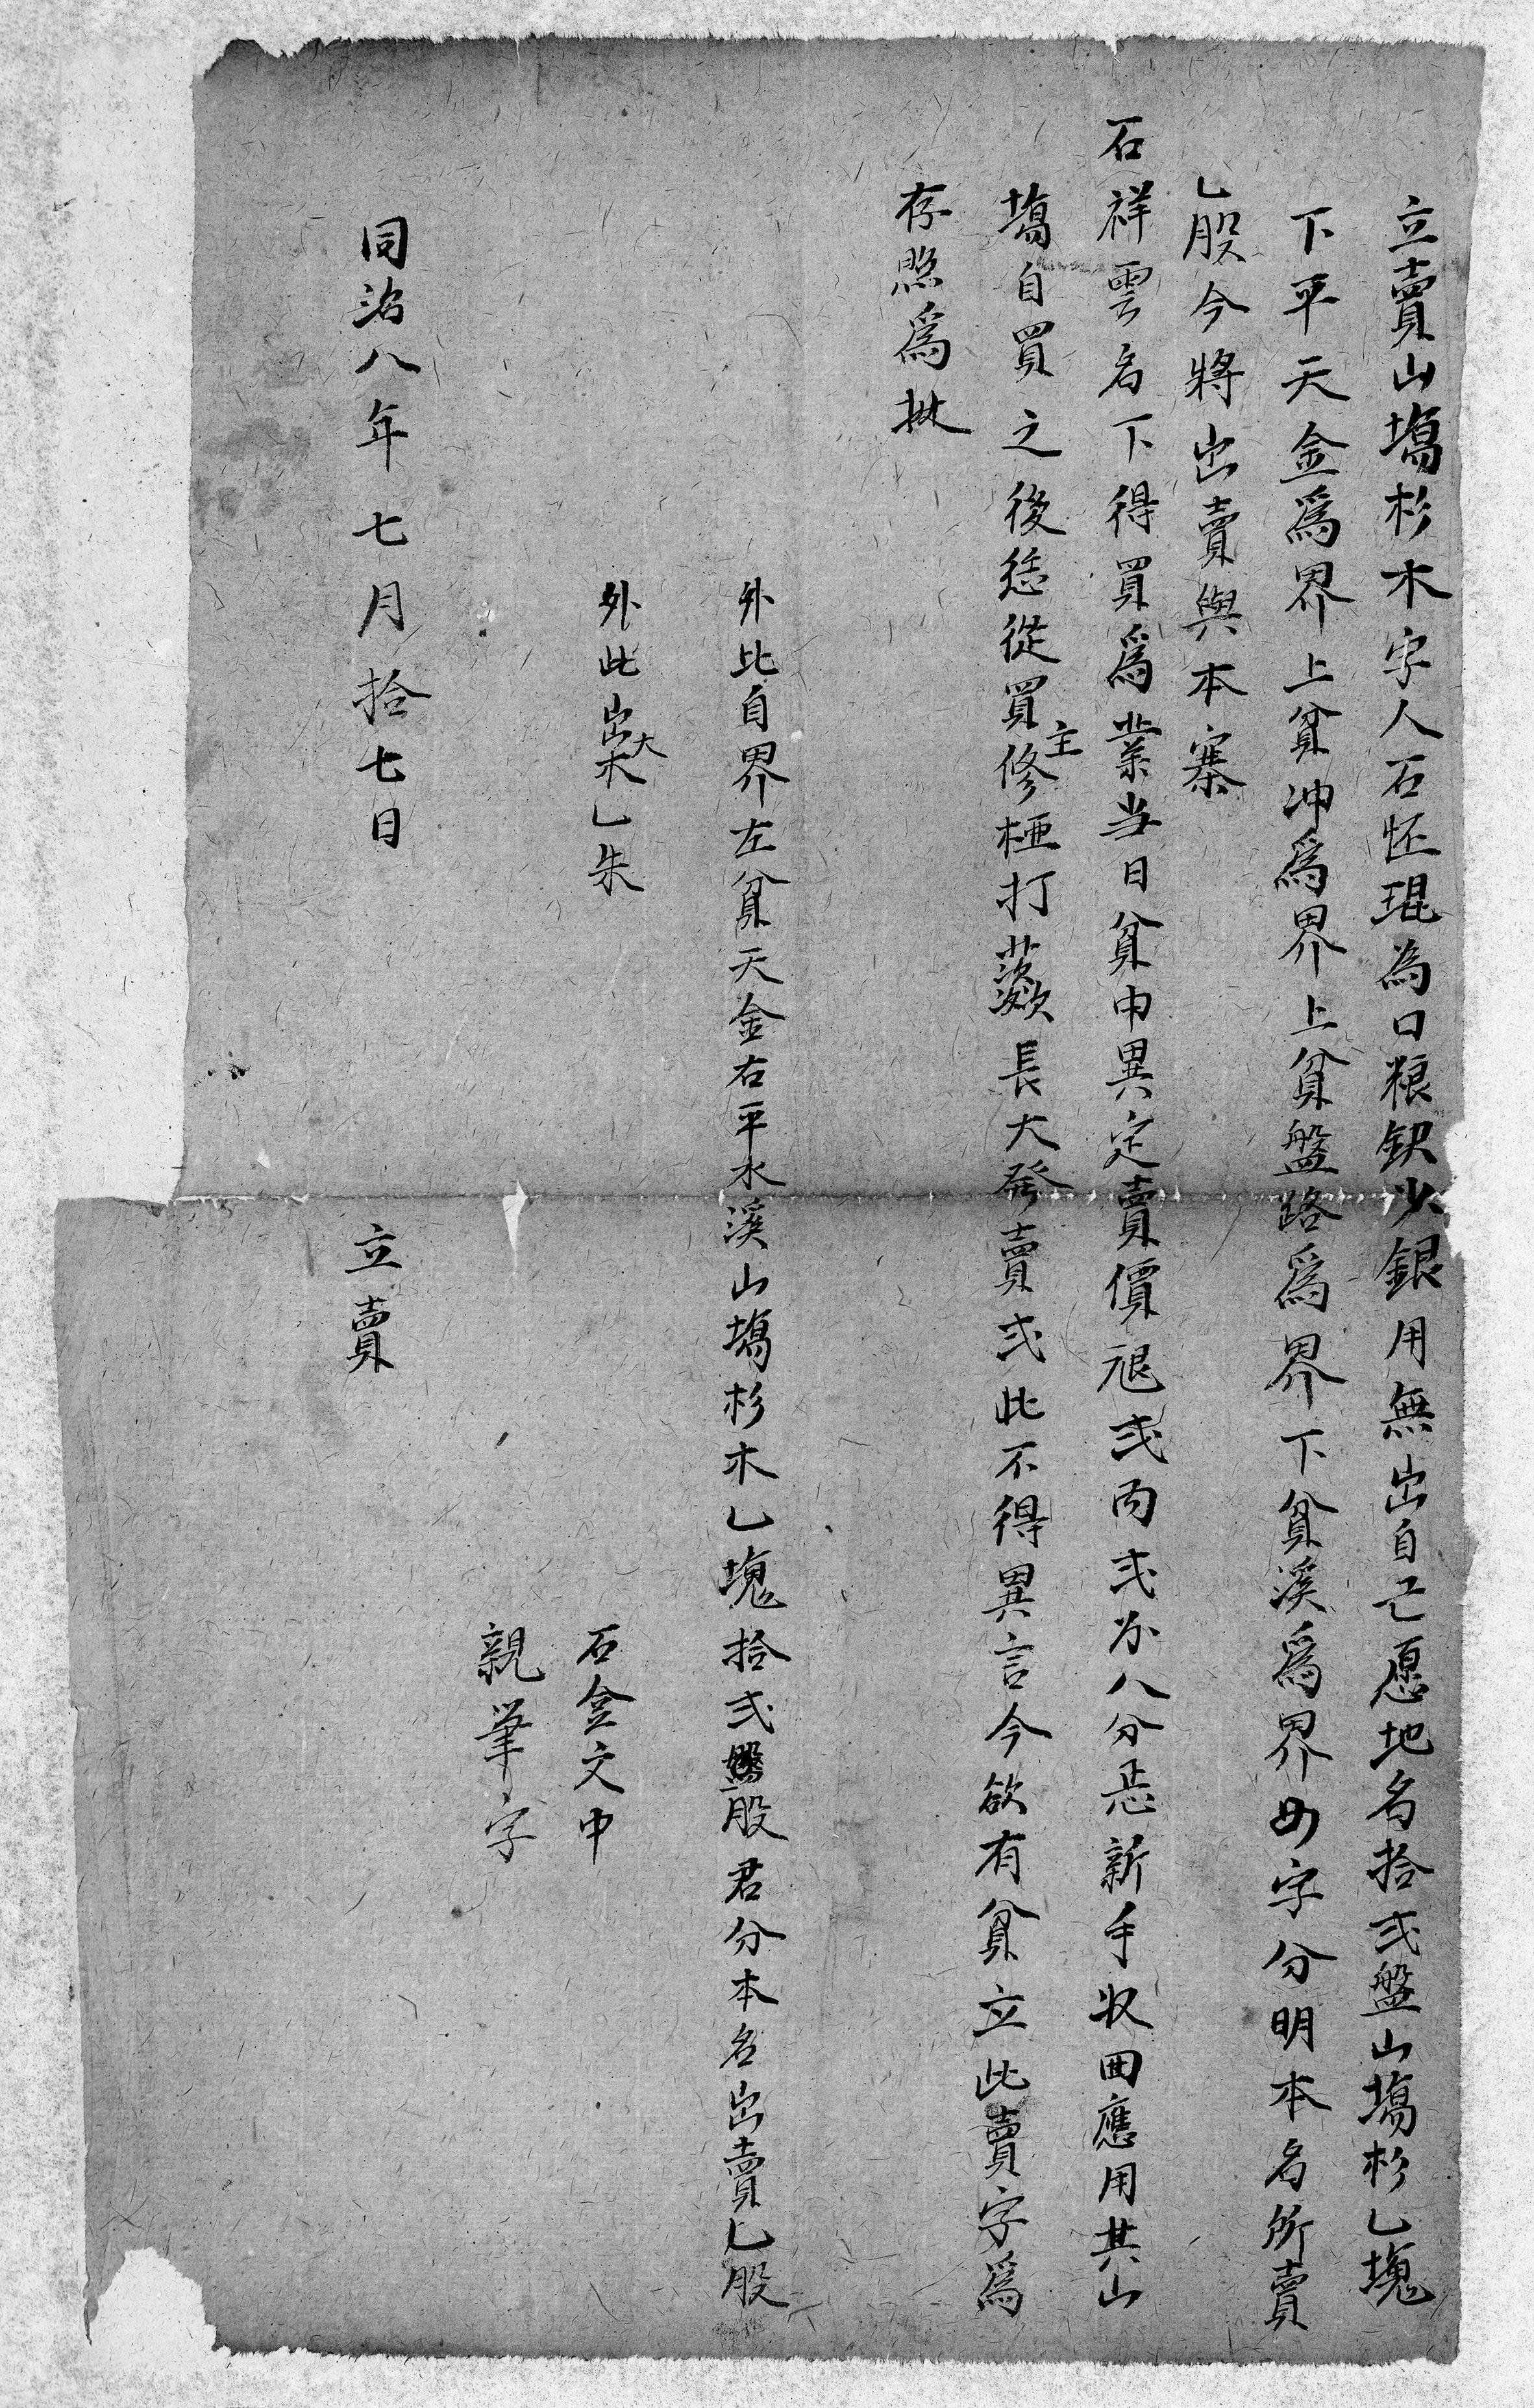 立賣山塲杉木字人石怌琨為口粮缺少銀用無出自己愿地名拾弍盤山塲杉乚塊
下平天金爲界上貧冲爲界上貧盤路爲界下貧溪爲界四字分明本名所賣
乚股今將出賣與本寨
石祥雲名下得買爲業当日貧中異定賣價艮弍両弍分八分岳新手収囬應用其山
塲自買之後恁從買主修桠打蕟長大発賣弍此不得異言今欲有貧立此賣字爲
存照爲㨿
外比自界左貧天金右平水溪山塲杉木乚塊拾弍股君分本名出賣乚股
外此出大木乚朱
石金文中
親筆字
同治八年七月拾七日 立賣